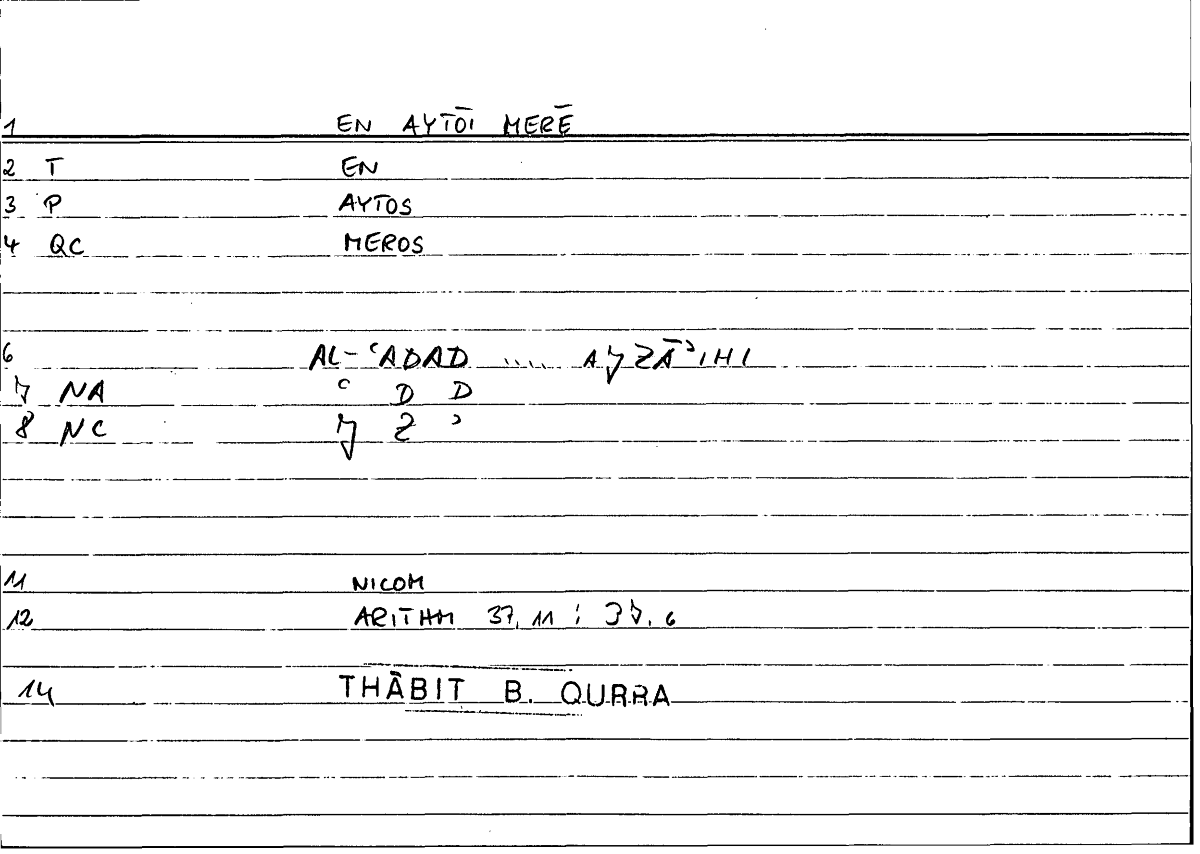 1 EN AYTŌI MERĒ
2 T EN
3 P AYTOS
4 QC MEROS
6 AL-ʿADAD .... AJZĀʾIHI
7 NA ʿ D D
8 NC J Z ʾ
11 NICOM
12 ARITHM 37, 11 ; 37. 6
14 THĀBIT B. QURRA